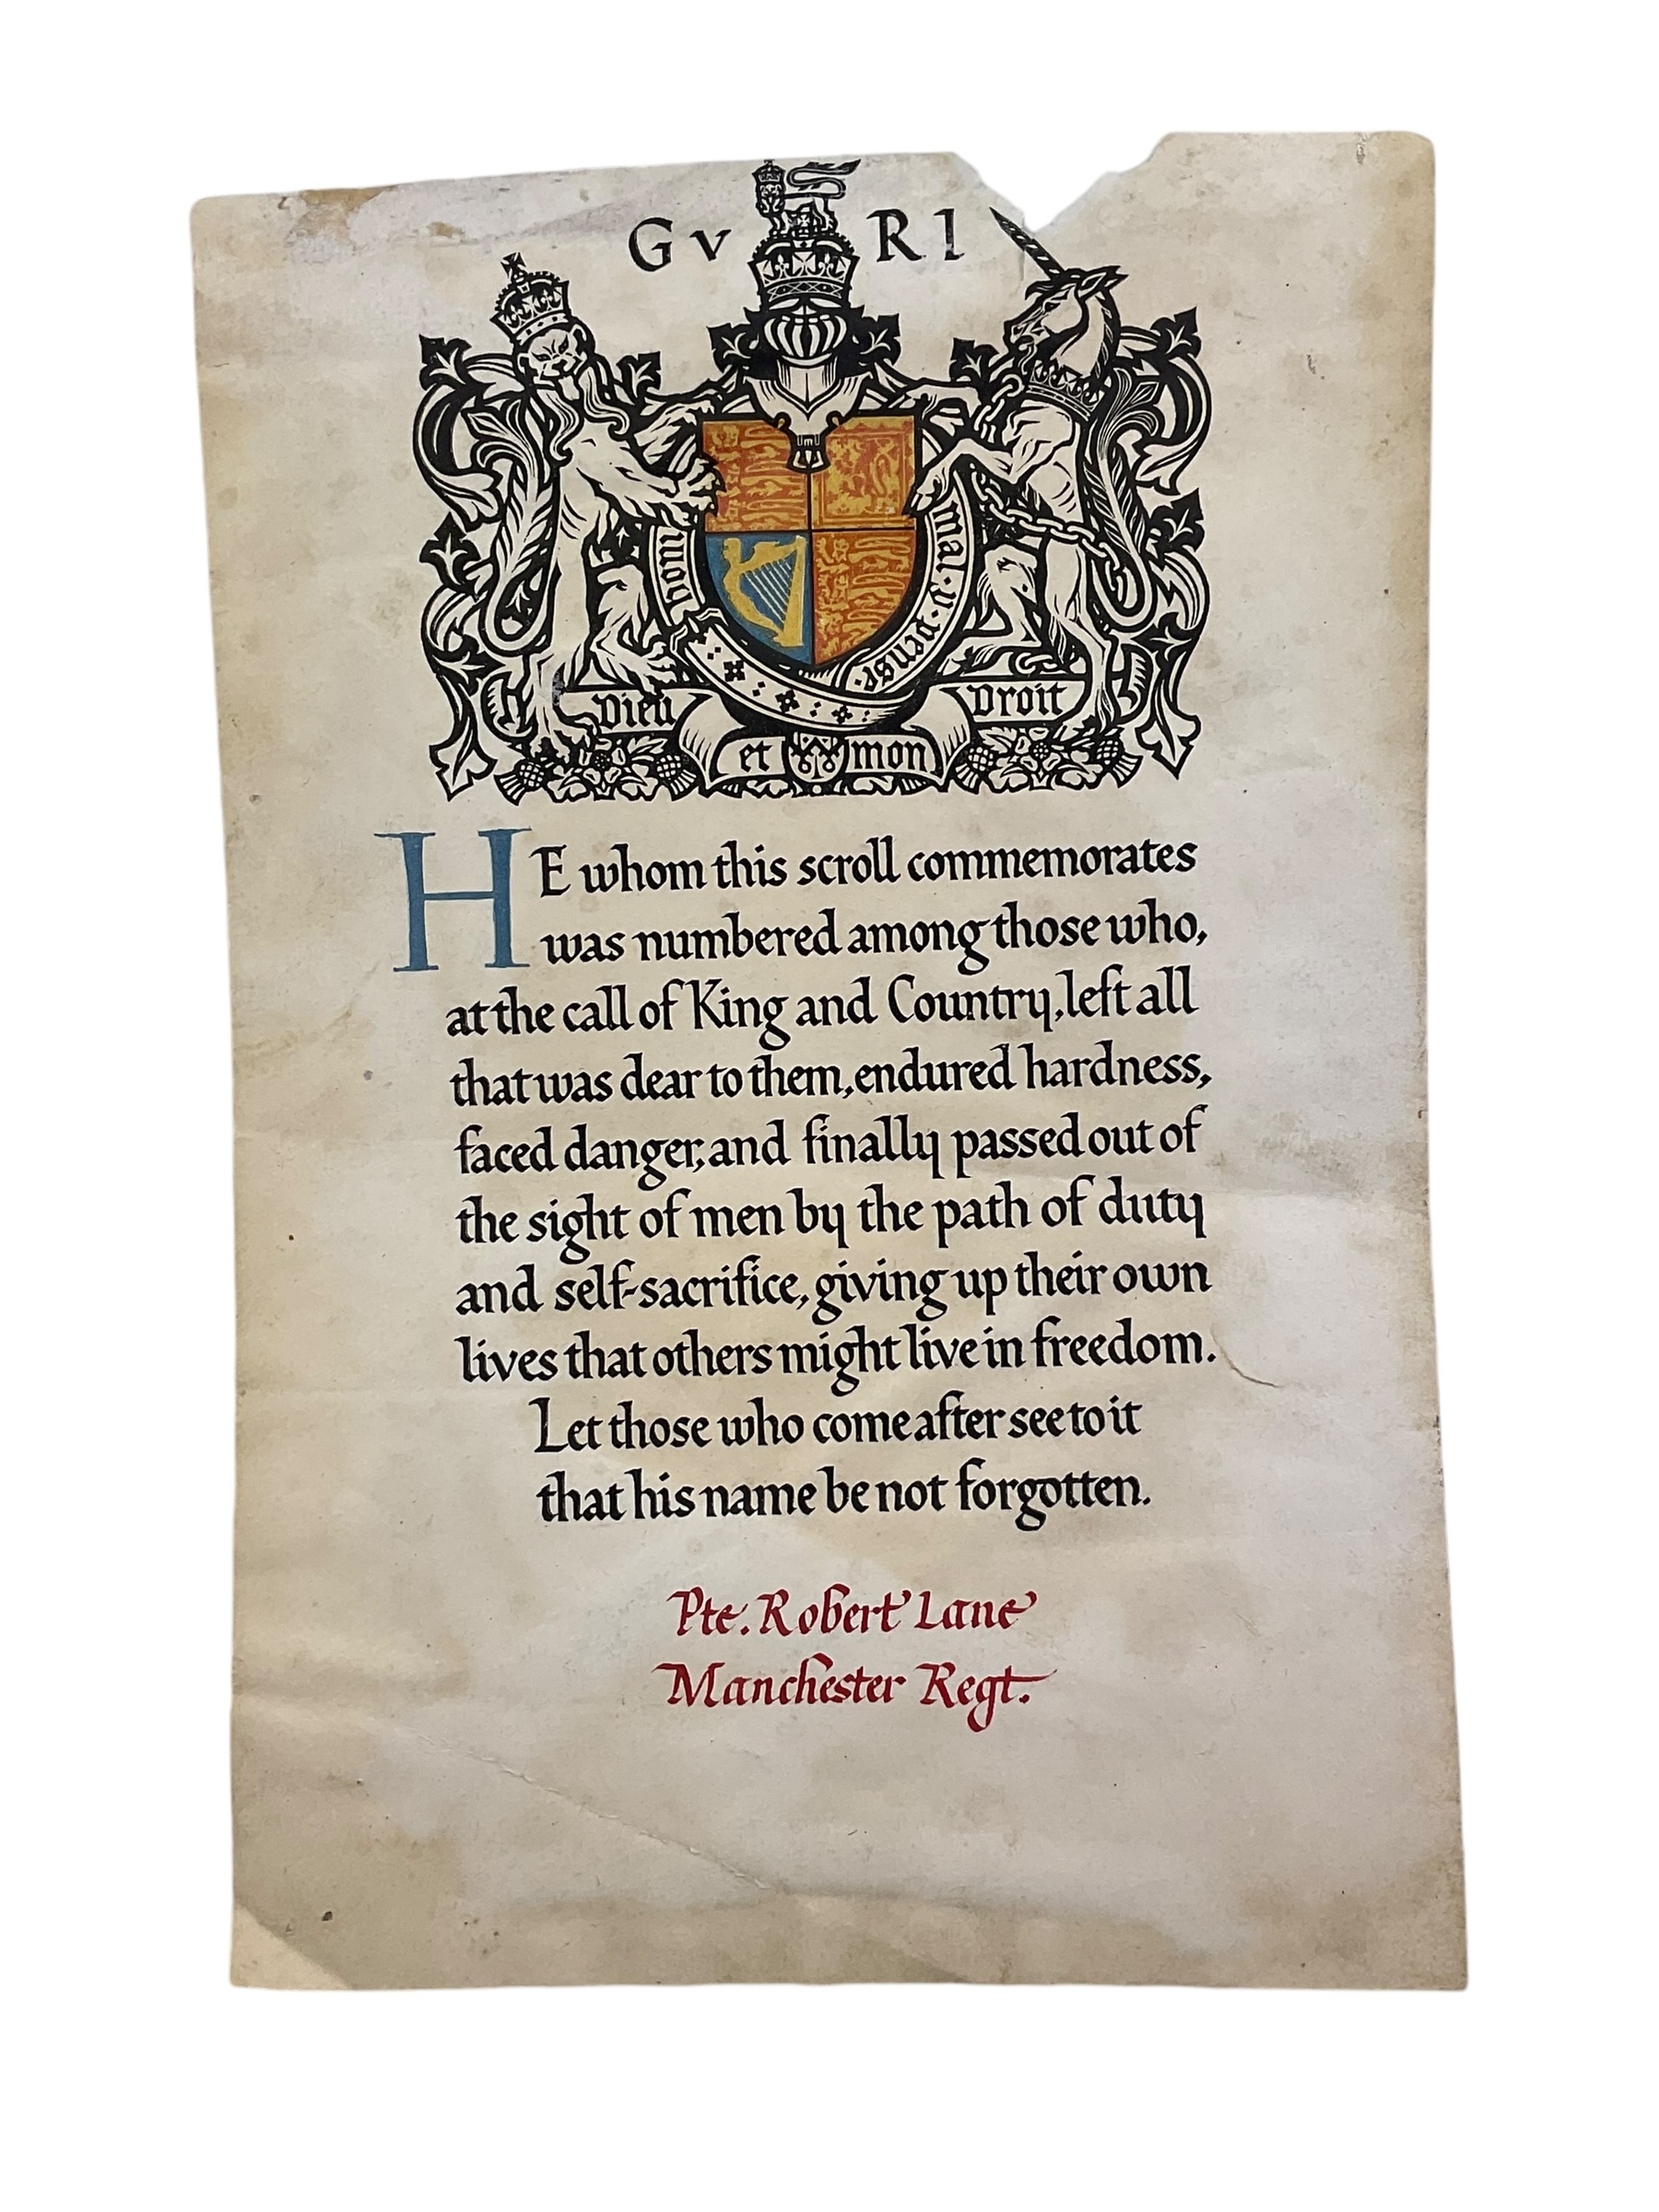 GV RI
honi mal · y · pense ·
Dieu et mon Droit
HE whom this scroll commemorates
was numbered among those who,
at the call of King and Country, left all
that was dear to them, endured hardness,
faced danger, and finally passed out of
the sight of men by the path of duty
and self-sacrifice, giving up their own
lives that others might live in freedom.
Let those who come after see to it
that his name be not forgotten.
Pte. Robert Lane
Manchester Regt.